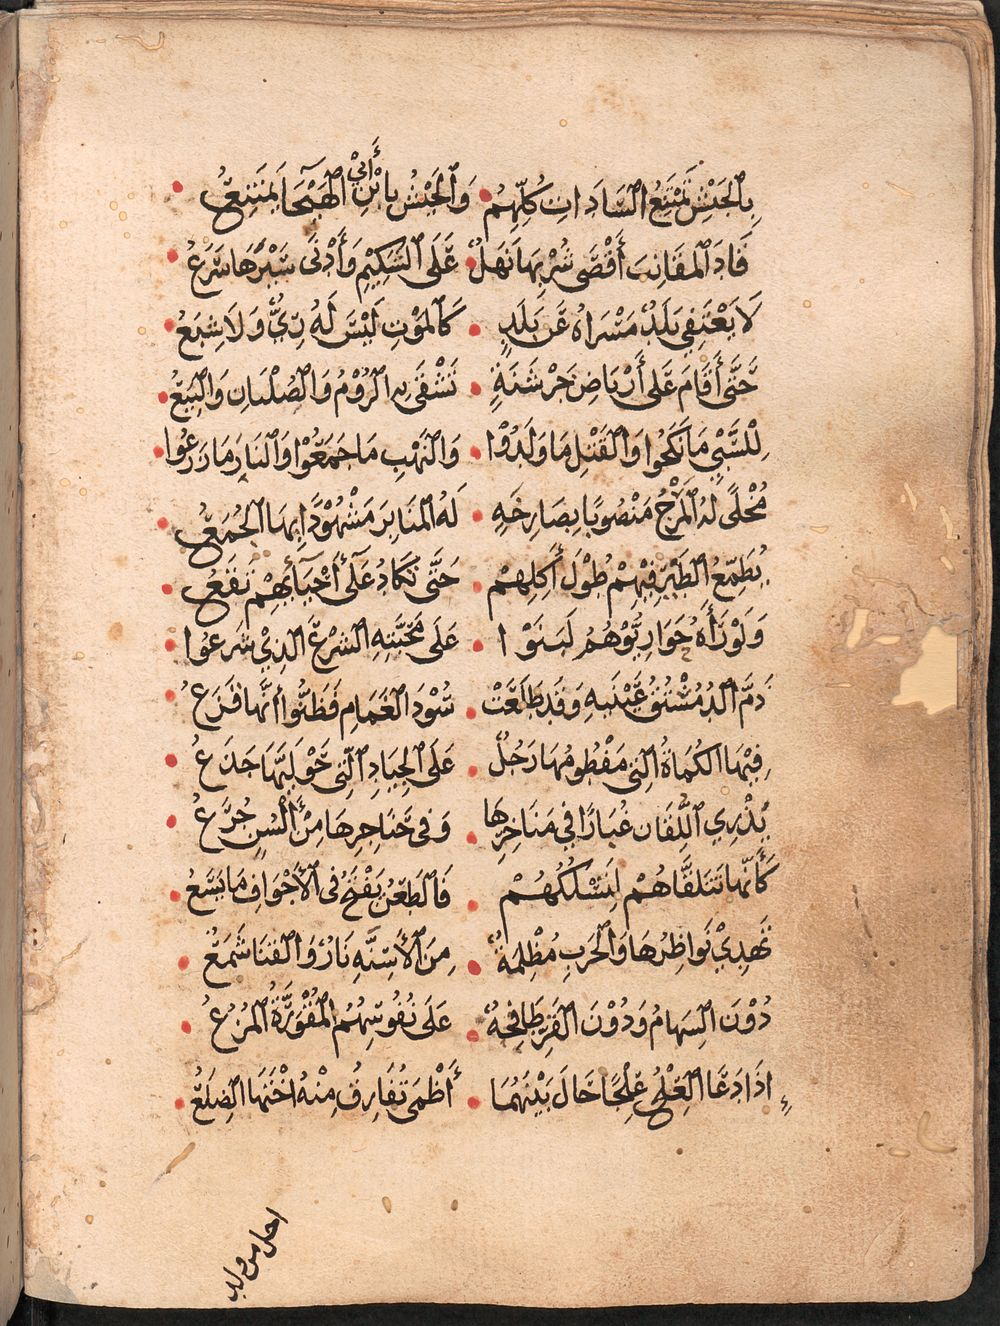 بِالجَيْشِ تَمْتَنِعُ السَّادَاتُ كُلِّهِمُ وَالجَيْشُ بِابْنِ أَبِيْ الهَيْجَاءِ يَمْتَنِعُ
قَادَ المَقَانِبَ أَقْصَى شُرْبِهَا نَهَلٌ عَلَى الشَّكِيْمِ وَأَدْنَى سَيْرِهَا سَرَعُ
لَا يَعْتَفِي بَلَدٌ مَسْرَاهُ عَنْ بَلَدٍ كَالمَوْتِ لَيْسَ لَهُ رِيٌّ وَلَا شِبَعُ
حَتَّى أَقَامَ عَلَى أَرْبَاضِ خَرْشَنَةٍ تَشْقَى بِهِ الرُّوْمُ وَالصُّلْبَانُ وَالبِيَعُ
لِلسَّبْيِ مَا نَكَحُوا وَالقَتْلِ مَا وَلَدُوْا وَالنَهْبِ مَا جَمَعُوْا وَالنَارِ مَا زَرَعُوا
مُخْلًى لَهُ المَرْجُ مَنْصُوبًا بِصَارِخَةٍ لَهُ المَنَابِرُ مَشْهُوْدًا بِهَا الجُمَعُ
يُطَمِّعُ الطَيْرَ فِيْهِمْ طُوْلُ أَكْلِهِمْ حَتَّى تَكَادُ عَلَى أَحْيَائِهِمْ تَقَعُ
وَلَوْ رَأَهُ حَوَارِيُّوْهُمُ لَبَنَوْا عَلَى مَحَبَّتِهِ الشَرْعَ الَذِيْ شَرَعُوا
ذَمَّ الدُمُسْتُقُ عَيْنَيْهِ وَقَدْ طَلَعَتْ سُوْدُ الغَمَامِ فَظَنُّوا أَنَّهَا قَزَعُ
فِيْهَا الكُمَاةُ الَتِي مَفْطُومُهَا رَجُلٌ عَلَى الجِيَادِ الَّتِي حَوْلِيُّهَا جَذَعُ
يُذْرِي اللُّقَانُ غُبَارًا فِي مَنَاخِرِهَا وَفِي حَنَاجِرِهَا مِنْ أَلْسُنٍ جُرَعُ
كَأَنَّهَا تَتَلَقَّاهُمْ لِتَسْلُكَهُمْ فَالطَعْنُ يَفْتَحُ فِي الأَجْوَافِ مَا يَسَعُ
تَهْدِيْ نَوَاظِرُهَا وَالحَرْبُ مُظْلِمَةٌ مِنَ الأَسِنَّةِ نَارٌ وَالقَنَا شَمَعُ
دُوْنَ السِهَامِ وَدُوْنَ القَرِّ طَافِحَةٌ عَلَى نُفُوسِهِمُ المُقْوَرَّةُ المُزُعُ
إِذَا دَعَا العِلْجُ عِلْجًا حَالَ بَيْنَهُمَا أَظْمَى تُفَارِقُ مِنْهُ أُخْتَهَا الضِلَعُ
اجل من ولد